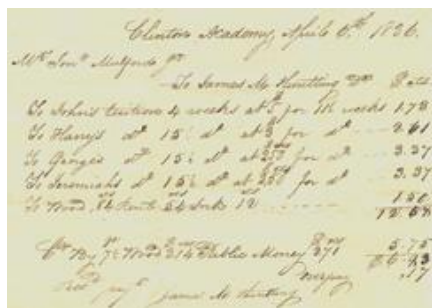 Clinton Academy, April 6th 1836.
Mr Jon. Mulford Jr
To James M. Huntting Dr. Dols
To John's tuition 4 weeks at $5 for 11½ weeks 1.78
To Harry's do 15½ do at $2 for do 2.61
To George's do 15½ do at 250 for do 3.37
To Jeremiah's do 15½ do at 250 for do 3.37
To Wood 84 54 Ink 12 1.50
12.58
Cr By Wood 214 Public Money 371 5.75
6.83
.17
Recd payt James M. Huntting